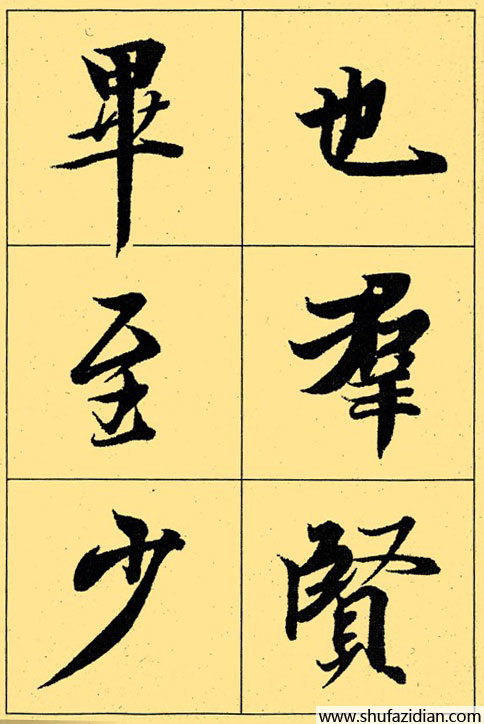 也羣賢
畢至少
www.shufazidian.com